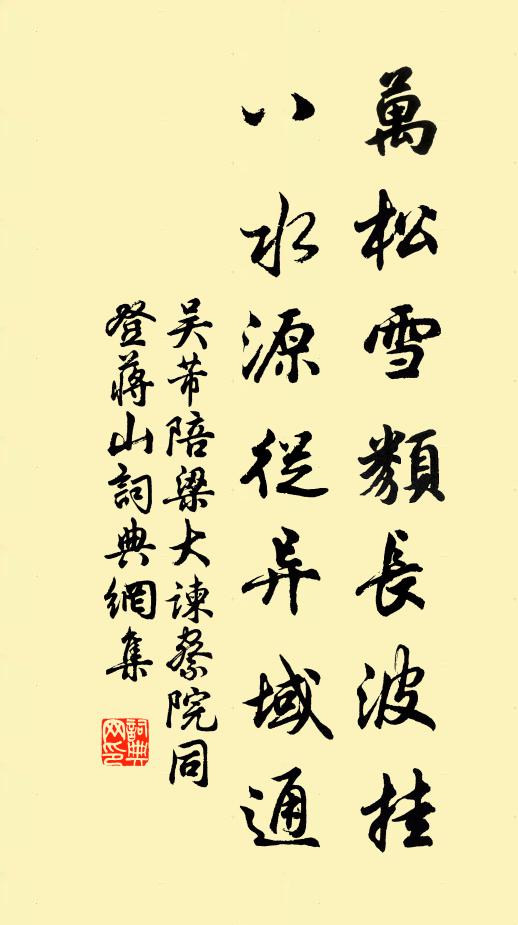 萬松雪類長波挂
八水源從异域通
吴芾陪梁大諫察院同
登蔣山詞典網集
詞典
网印